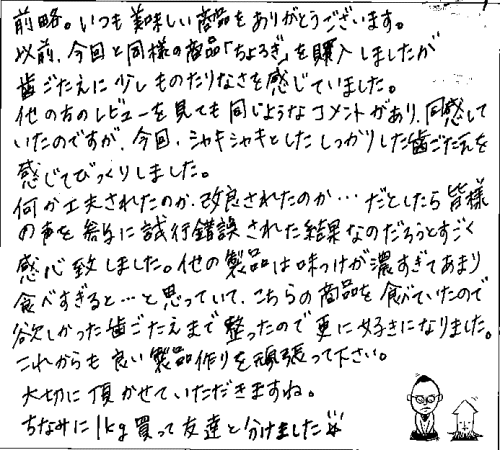 前略。いつも美味しい商品をありがとうございます。
以前、今回と同様の商品「ちょろぎ」を購入しましたが
歯ごたえに少しものたりなさを感じていました。
他の方のレビューを見ても同じようなコメントがあり、同感して
いたのですが、今回、シャキシャキとしたしっかりした歯ごたえを
感じてびっくりしました。
何か工夫されたのか、改良されたのか…だとしたら皆様
の声を参考に試行錯誤された結果なのだろうとすごく
感心致しました。他の製品は味つけが濃すぎてあまり
食べすぎると…と思っていて、こちらの商品を食べていたので
欲しかった歯ごたえまで整ったので更に好きになりました。
これからも良い製品作りを頑張って下さい。
大切に頂かせていただきますね。
ちなみに1kg買って友達と分けました